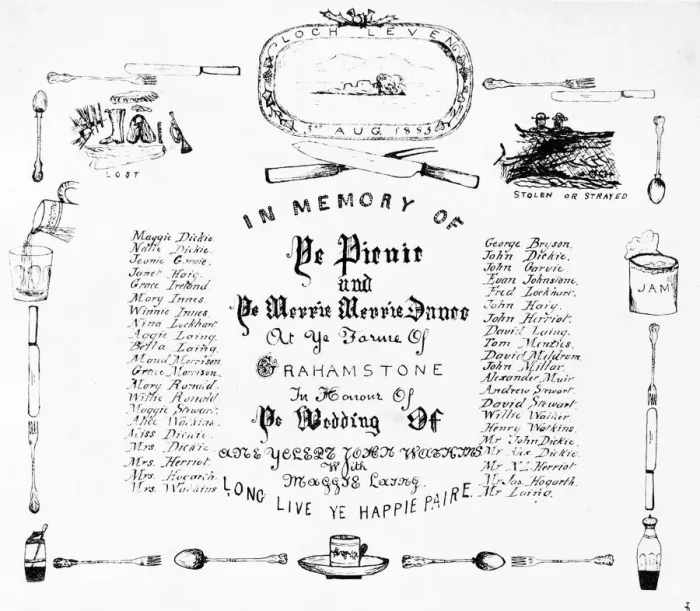 LOCH LEVEN
3RD AUG. 1883
LOST
STOLEN OR STRAYED
IN MEMORY OF
Ye Picnic
and
Ye Merrie Merrie Dance
At Ye Farme Of
GRAHAMSTONE
In Honour Of
Ye Wedding Of
ANE YCLEPT JOHN WATKINS
With
MAGGIE LAING.
LONG LIVE YE HAPPIE PAIRE.
Maggie Dickie
Dickie
Jeanie Garvie.
Janet Haig.
Grace Ireland
Mary Innes.
Winnie Innes.
Nina Lockhart
Aggie Laing.
Bella Laing.
Maud Morrison
Grace Morrison.
Mary Ronald.
Willie Ronald
Maggie Stewart.
Alice Watkins.
Miss Dickie.
Mrs. Dickie.
Mrs. Herriot.
Mrs. Hogarth.
Mrs. Watkins
George Bryson.
John Dickie.
John Garvie.
Evan Johnstone.
Fred Lockhart.
John Haig.
John Herriot.
David Laing.
Tom Menties.
David Meldrum.
John Millar.
Alexander Muir.
Andrew Stewart
David Stewart.
Willie Walker.
Henry Watkins.
Mr John Dickie.
Mr Dickie.
Mr Herriot.
Mr Jas. Hogarth.
Mr Laing.
JAM